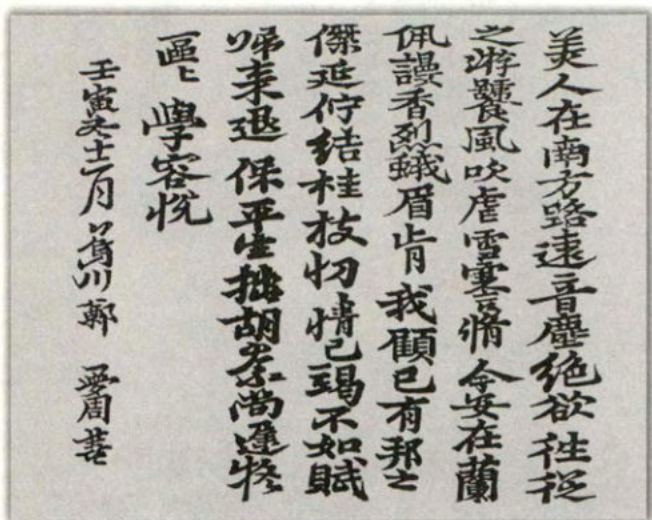 美人在南方路遠音塵絶欲往從
之游饕風吹虐雪謇脩今安在蘭
佩謾香烈蛾眉肯我顧已有邦之
傑延佇結桂枝忉情已竭不如賦
歸来退保平生拙胡尚遲
區〻學容悅
壬寅冬十二月葛川鄭周書